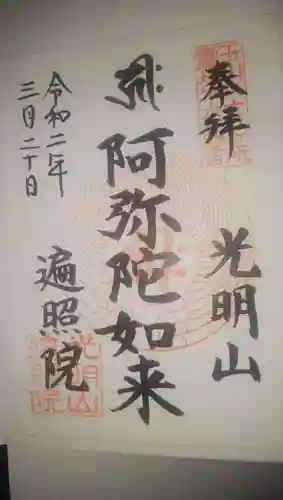 奉拝
光明山
阿弥陀如来
令和二年
三月二十日
遍照院